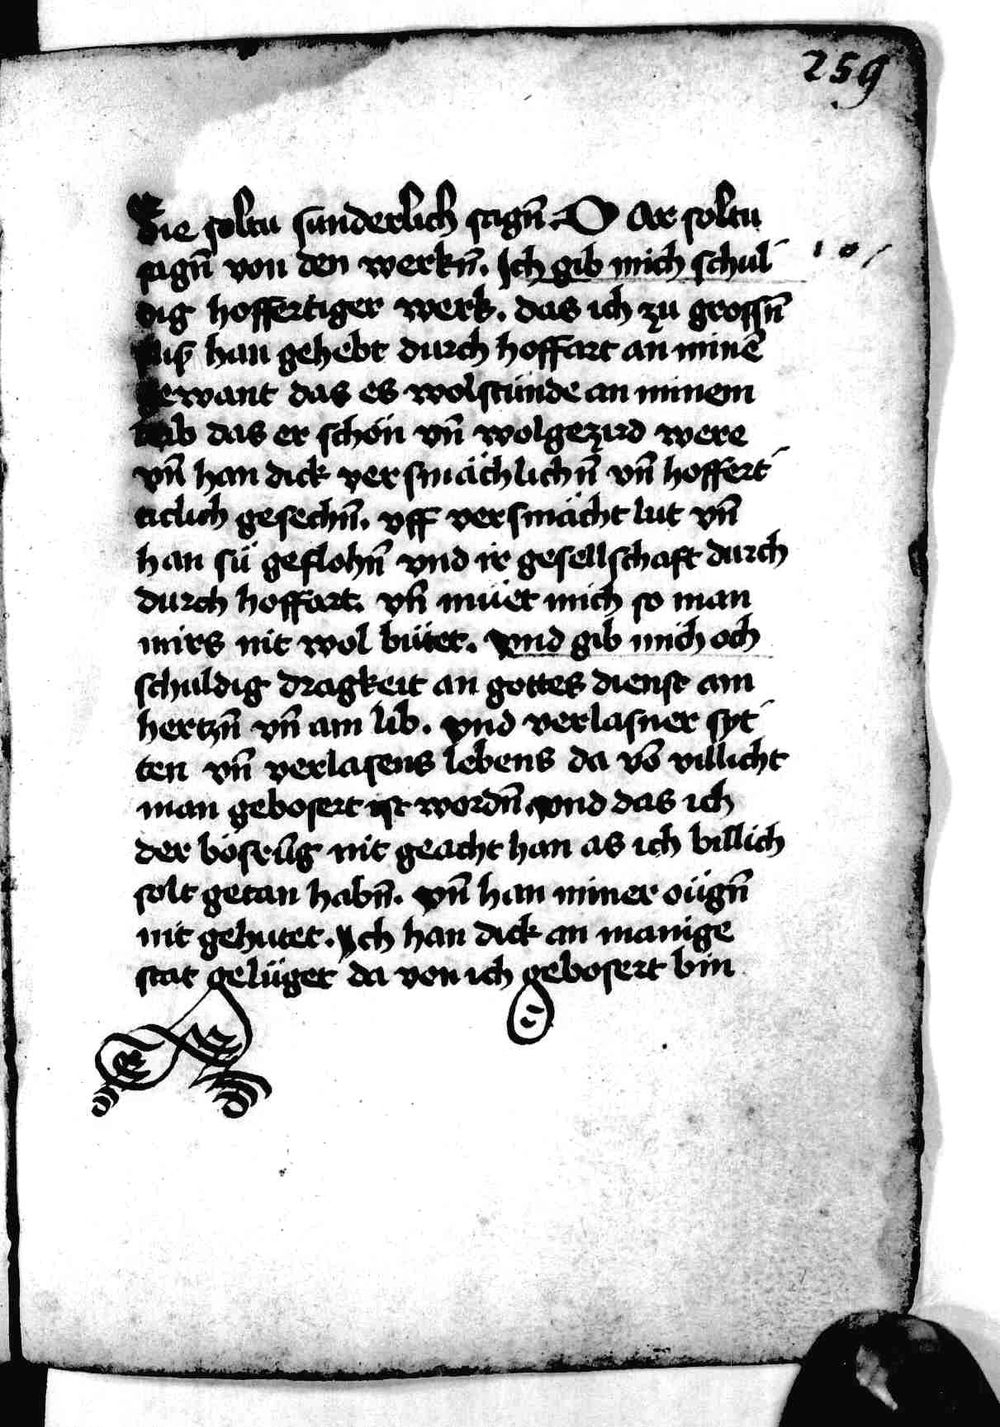 259
die soltu sunderlich sagn̄. Dar soltu
sagn̄ von den werkn̄. Ich gib mich schul
dig hoffertiger werk. das ich zu grossn̄
flis han gehebt durch hoffart an minē
gewant das es wolstünde an minem
lib das er schön vn̄ wolgezird were
vn̄ han dick versmächlichn̄ vn̄ hoffert
ticlich gesechn̄. vff versmächt lut vn̄
han sü geflohn̄ vnd ir gesellschaft durch
durch hoffart. vn̄ müet mich so man
mirs nit wol bütet. vnd gib mich och
schuldig dragkeit an gottes dienst am
hertzn̄ vn̄ am lib. vnd verlasner syt
ten vn̄ verlasens lebens da vō villicht
man gebosert ist wordn̄ vnd das ich
der bösrūg nit geacht han as ich billich
solt getan habn̄. vn̄ han miner oügn̄
nit gehutet. Ich han dick an manige
stat gelüget da von ich gebosert bin